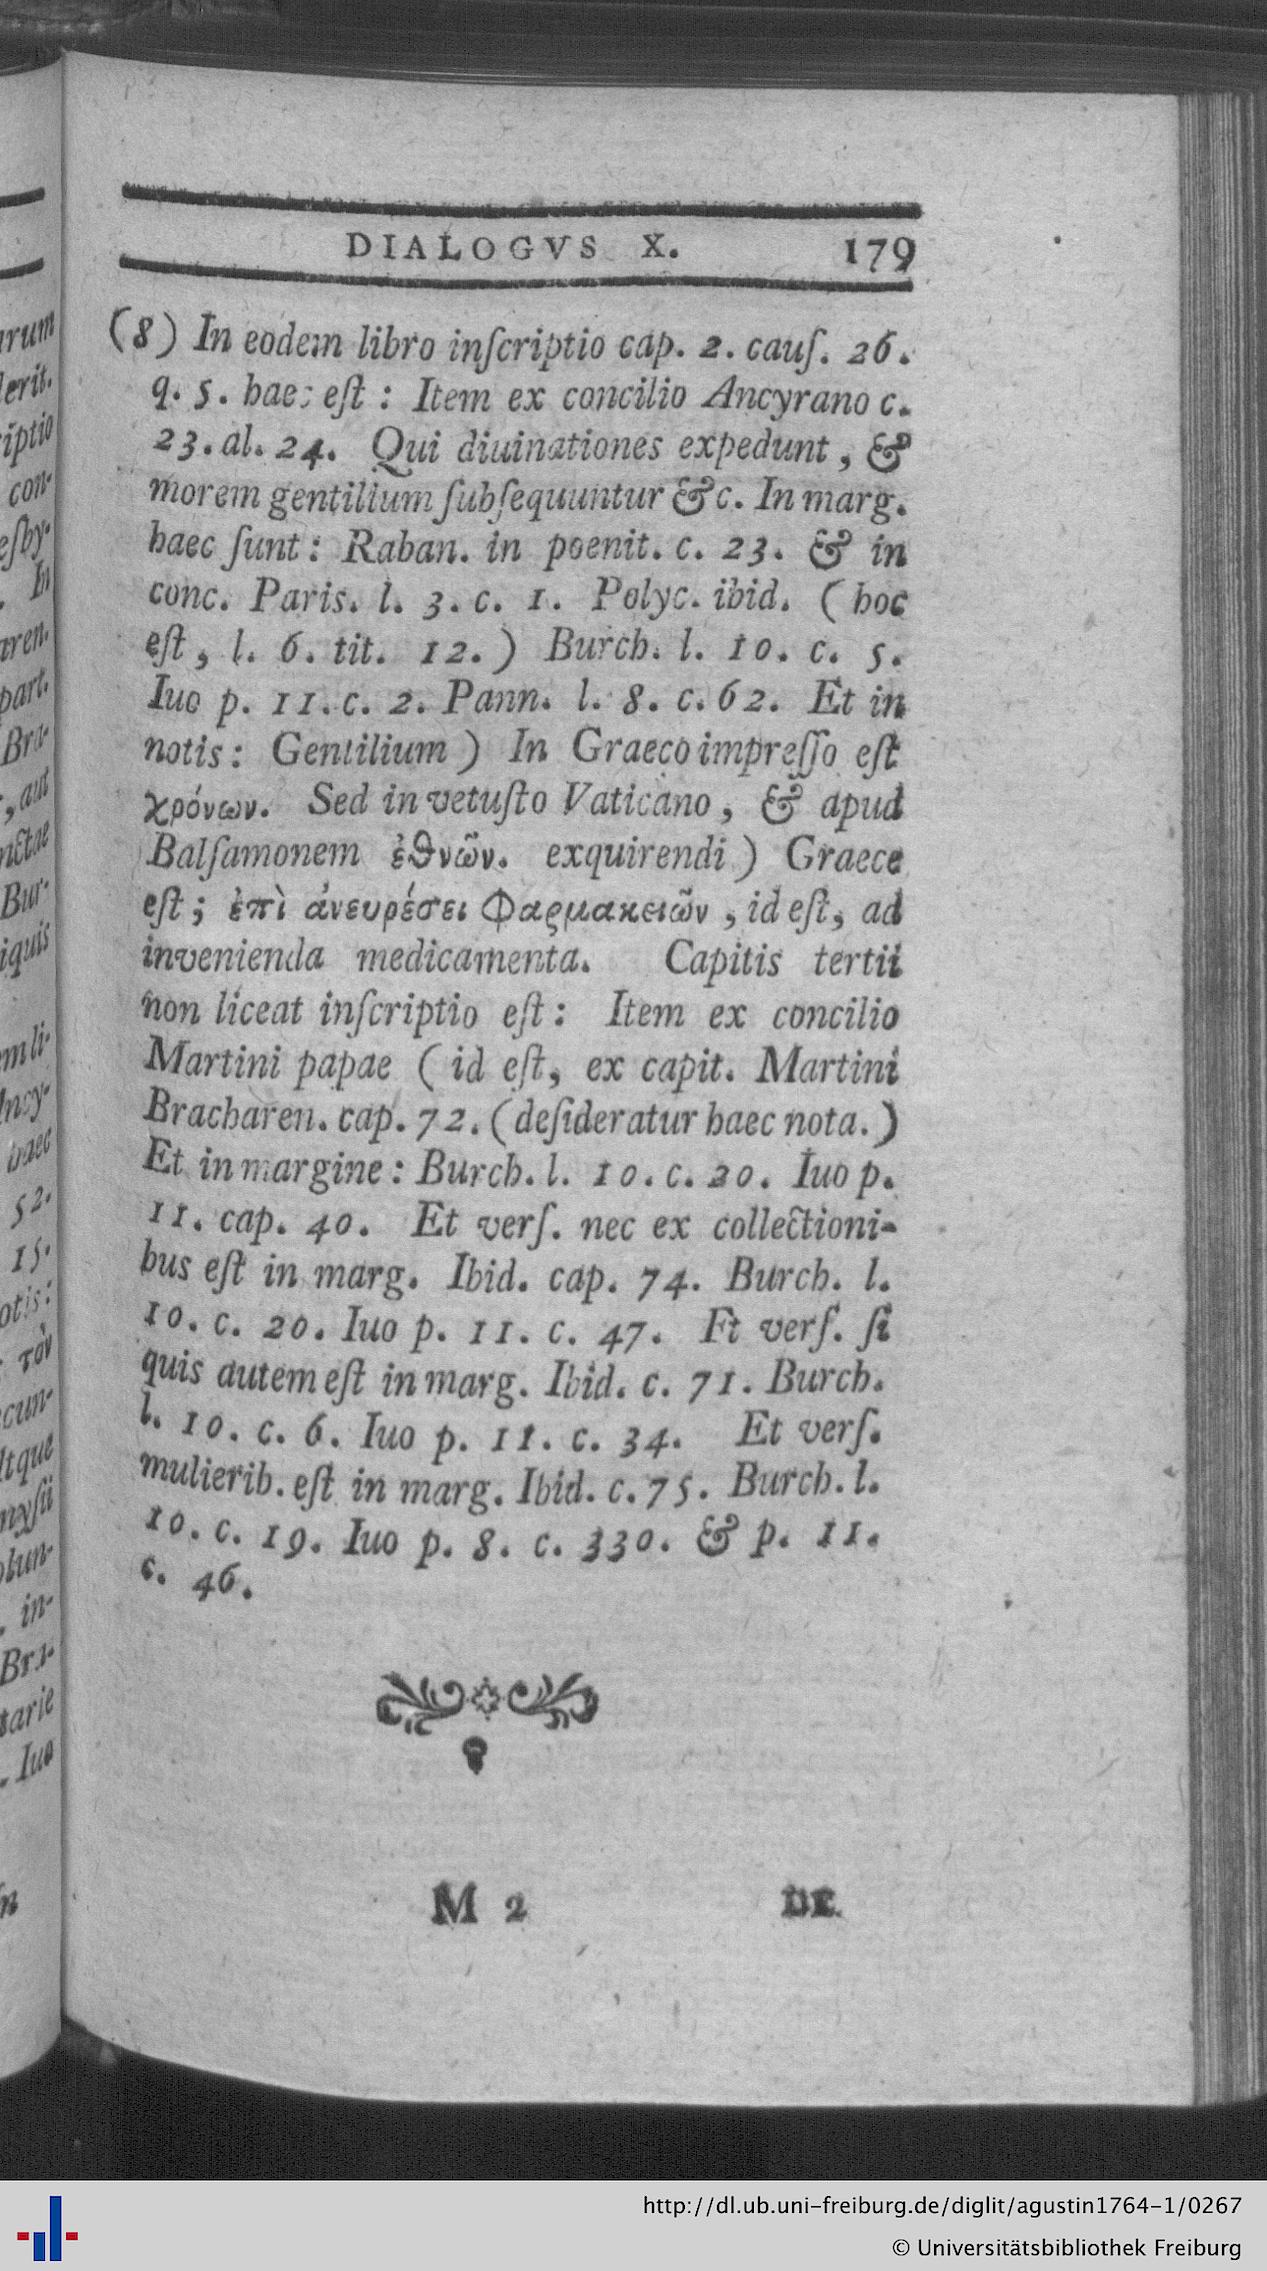 DIALOGVS X. 179
(8) In eodem libro inſcriptio cap. 2. cauſ. 26.
q. 5. haec eſt : Item ex concilio Ancyrano c.
23. al. 24. Qui diuinationes expedunt , &
morem gentilium ſubſequuntur &c. In marg.
haec ſunt : Raban. in poenit. c. 23. & in
conc. Paris. l. 3. c. 1. Polyc. ibid. ( hoc
eſt , l. 6. tit. 12. ) Burch. l. 10. c. 5.
Iuo p. 11. c. 2. Pann. l. 8. c. 62. Et in
notis : Gentilium ) In Graeco impreſſo eſt
χρόνων. Sed in vetuſto Vaticano , & apud
Balſamonem ἐθνῶν. exquirendi ) Graece
eſt ; ἐπὶ ἀνευρέσει Φαρμακειῶν , id eſt, ad
invenienda medicamenta. Capitis tertii
non liceat inſcriptio eſt : Item ex concilio
Martini papae ( id eſt, ex capit. Martini
Bracharen. cap. 72. ( deſideratur haec nota. )
Et in margine : Burch. l. 10. c. 20. Iuo p.
11. cap. 40. Et verſ. nec ex collectioni-
bus eſt in marg. Ibid. cap. 74. Burch. l.
10. c. 20. Iuo p. 11. c. 47. Et verſ. ſi
quis autem eſt in marg. Ibid. c. 71. Burch.
l. 10. c. 6. Iuo p. 11. c. 34. Et verſ.
mulierib. eſt in marg. Ibid. c. 75. Burch. l.
10. c. 19. Iuo p. 8. c. 330. & p. 11.
c. 46.
M 2 DE
http://dl.ub.uni-freiburg.de/diglit/agustin1764-1/0267
© Universitätsbibliothek Freiburg